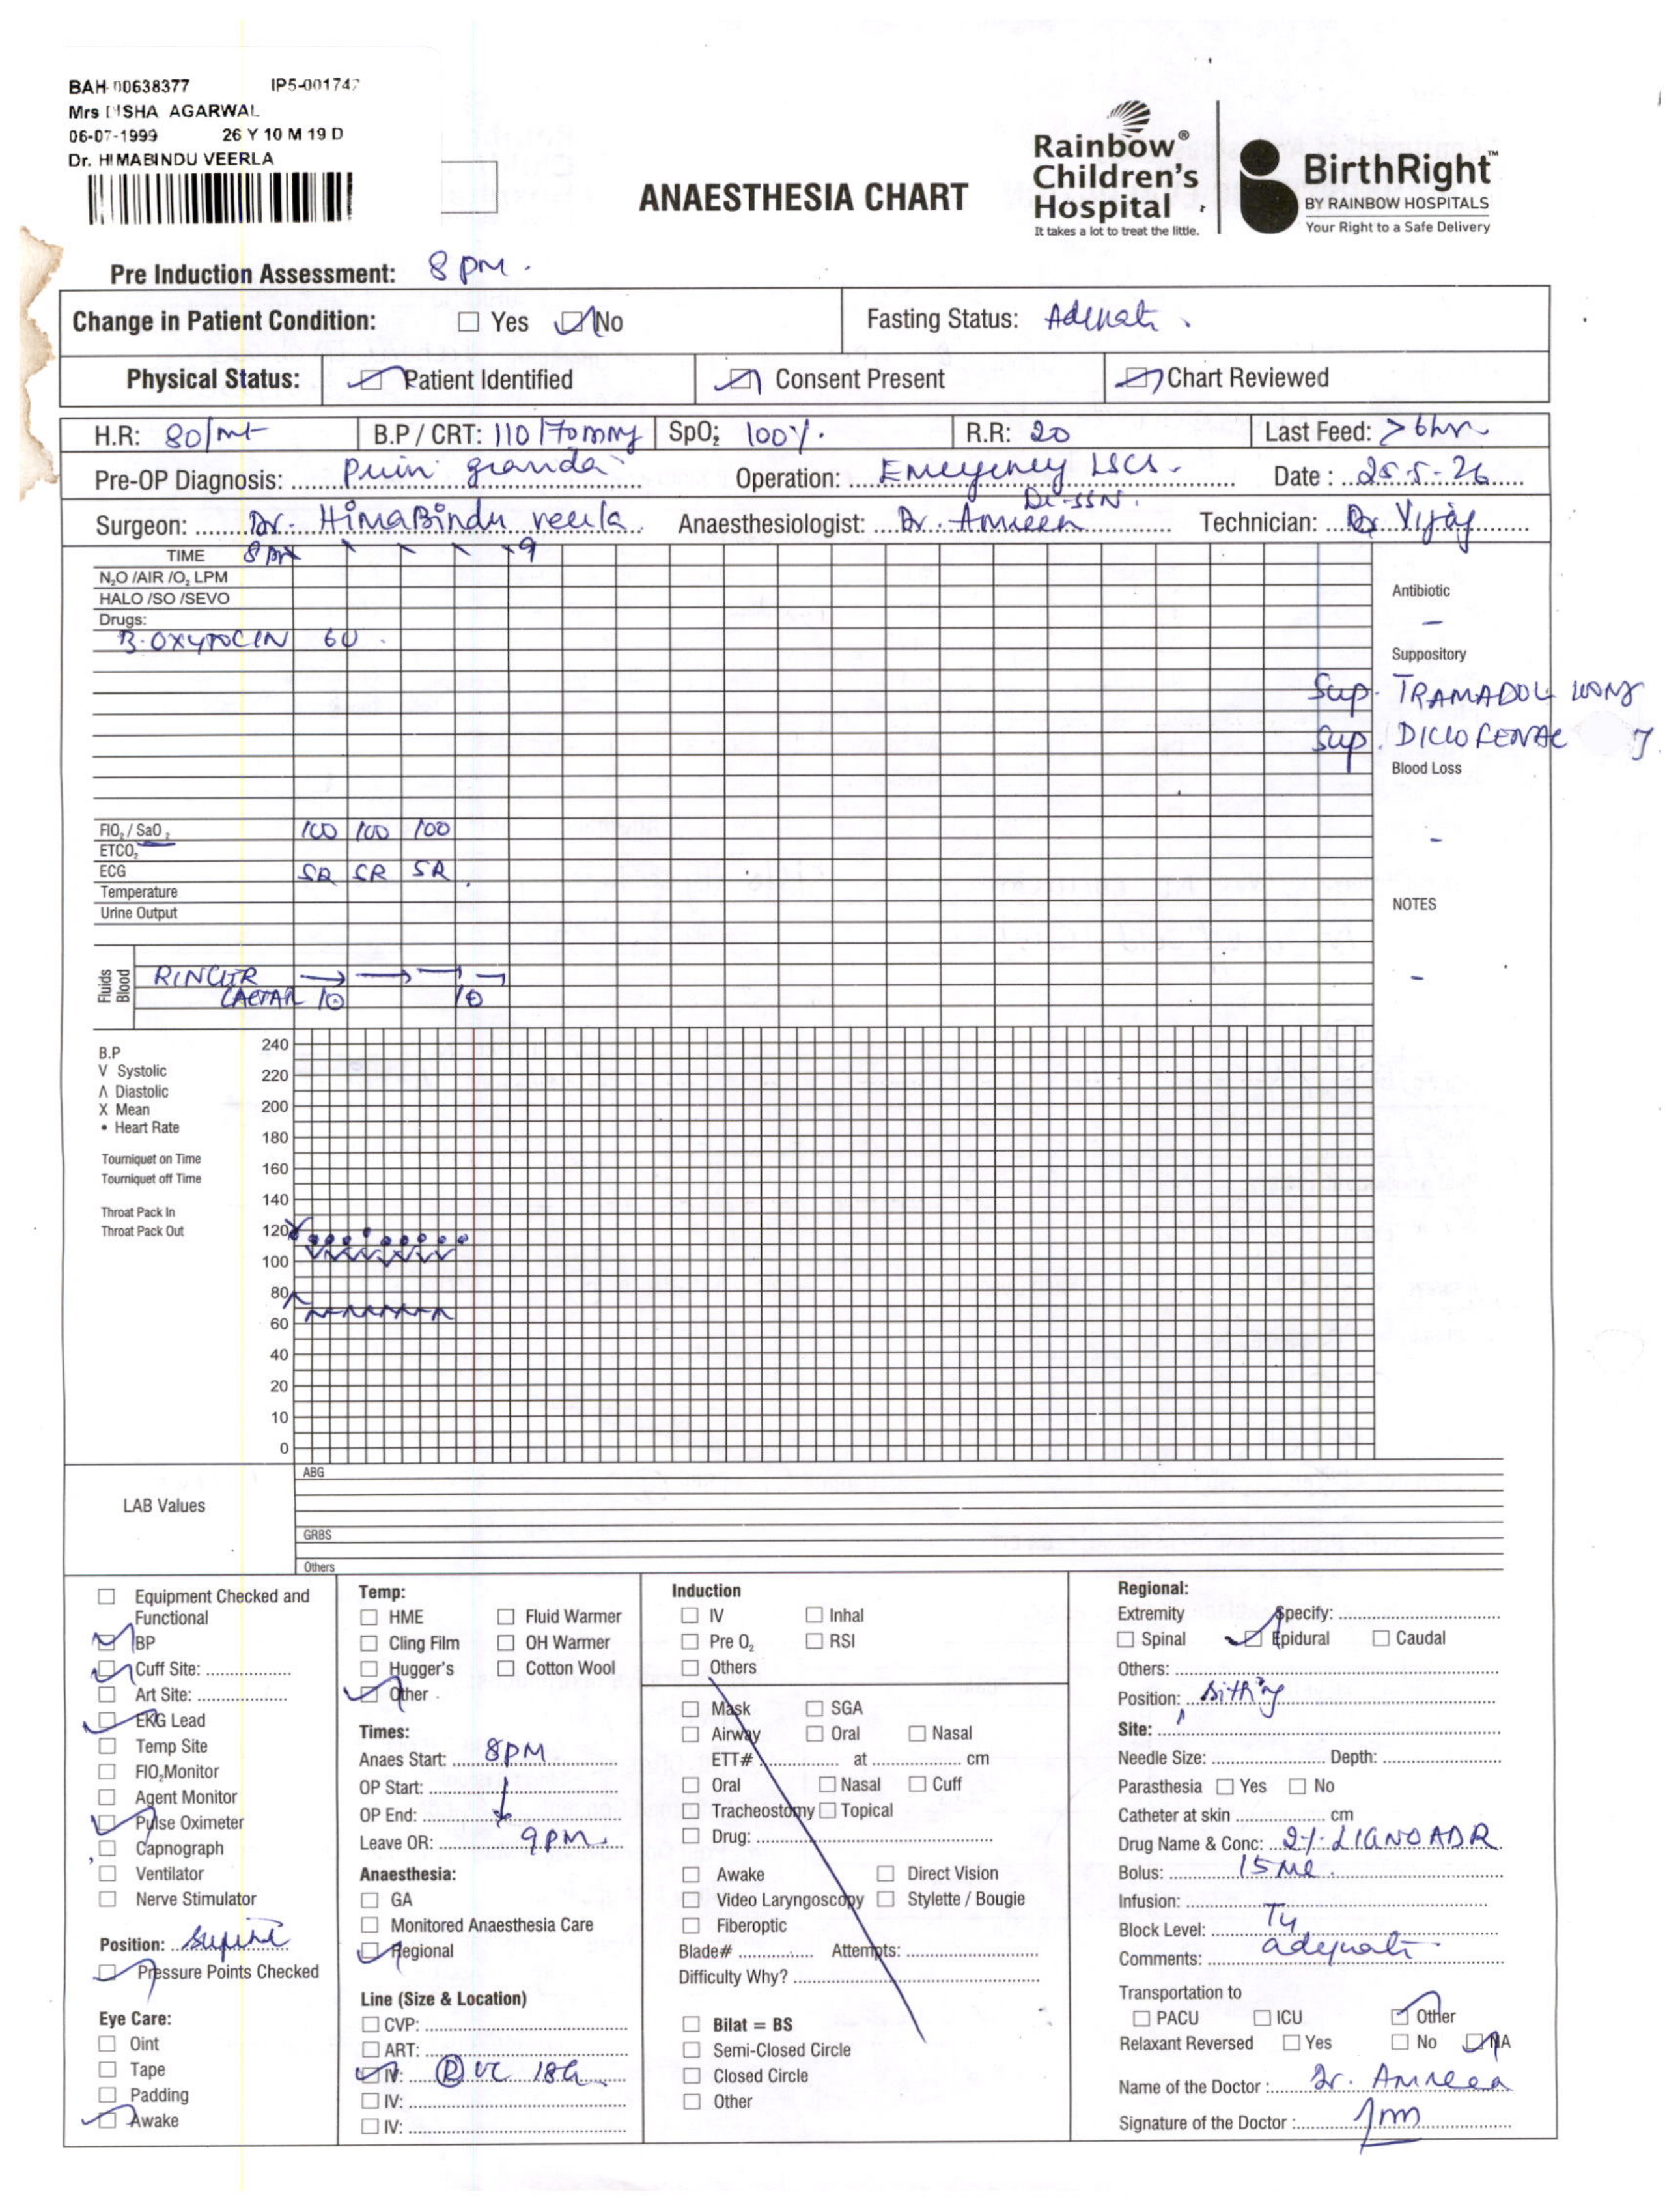 BAH-00638377 IP5-001747
Mrs DISHA AGARWAL
06-07-1999 26 Y 10 M 19 D
Dr. HIMABINDU VEERLA
ANAESTHESIA CHART
Rainbow® Children's Hospital
It takes a lot to treat the little.
BirthRight™
BY RAINBOW HOSPITALS
Your Right to a Safe Delivery
Pre Induction Assessment: 8 pm.
Change in Patient Condition: Yes No Fasting Status:
Physical Status: Patient Identified Consent Present Chart Reviewed
H.R: 80/mt B.P / CRT: 110/70mmHg SpO2: 100%. R.R: 20 Last Feed: >6hr
Pre-OP Diagnosis: Operation: Emergency LSCS. Date: 25-5-26
Dr. SSN.
Surgeon: Dr. HimaBindu veerla Anaesthesiologist: Dr. Amreen Technician: Vijay
TIME 8 pm 9
N2O /AIR /O2 LPM
HALO /SO /SEVO
Antibiotic
-
Drugs:
OXYTOCIN 6U.
Suppository
Sup. TRAMADOL 100mg
Sup. DICLOFENAC
Blood Loss
-
FIO2 / SaO2 100 100 100
ETCO2
ECG SR SR SR
Temperature
Urine Output
NOTES
-
Fluids Blood
RINGER
LACTATE
B.P
V Systolic
Λ Diastolic
X Mean
• Heart Rate
Tourniquet on Time
Tourniquet off Time
Throat Pack In
Throat Pack Out
240
220
200
180
160
140
120
100
80
60
40
20
10
0
LAB Values
ABG
GRBS
Others
Equipment Checked and Functional
BP
Cuff Site:
Art Site:
EKG Lead
Temp Site
FIO2Monitor
Agent Monitor
Pulse Oximeter
Capnograph
Ventilator
Nerve Stimulator
Position: Supine
Pressure Points Checked
Eye Care:
Oint
Tape
Padding
Awake
Temp:
HME Fluid Warmer
Cling Film OH Warmer
Hugger's Cotton Wool
Other
Times:
Anaes Start: 8PM
OP Start:
OP End:
Leave OR: 9PM
Anaesthesia:
GA
Monitored Anaesthesia Care
Regional
Line (Size & Location)
CVP:
ART:
IV: 18G
IV:
IV:
Induction
IV Inhal
Pre O2 RSI
Others
Mask SGA
Airway Oral Nasal
ETT# at cm
Oral Nasal Cuff
Tracheostomy Topical
Drug:
Awake Direct Vision
Video Laryngoscopy Stylette / Bougie
Fiberoptic
Blade# Attempts:
Difficulty Why?
Bilat = BS
Semi-Closed Circle
Closed Circle
Other
Regional:
Extremity Specify:
Spinal Epidural Caudal
Others:
Position: Sitting
Site:
Needle Size: Depth:
Parasthesia Yes No
Catheter at skin cm
Drug Name & Conc: 2% LIGNO ADR
Bolus: 15ml.
Infusion:
Block Level: T4
Comments: adequate
Transportation to
PACU ICU Other
Relaxant Reversed Yes No NA
Name of the Doctor: Dr. Amreen
Signature of the Doctor: